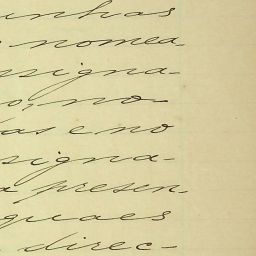 unhas
nomea-
signa-
o, no
as e no
signa-
a presen-
quaes
direc-